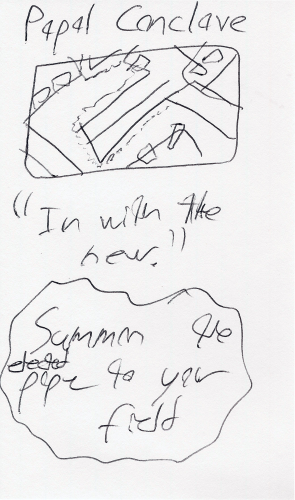 Papal Conclave
"In with the
new."
Summon the
elected
pope to your
field